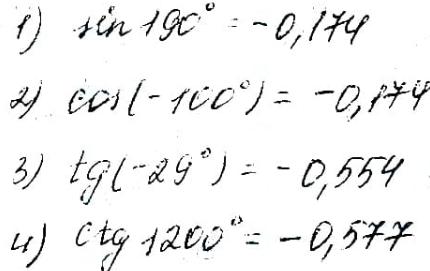 1) sin 190° = -0,174
2) cos(-100°) = -0,174
3) tg(-29°) = -0,554
4) ctg 1200° = -0,577